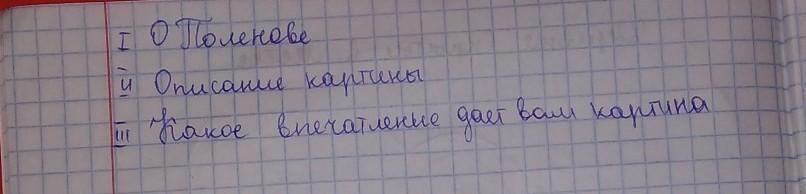 I О Поленове
II Описание картины
III Какое впечатление дает вам картина